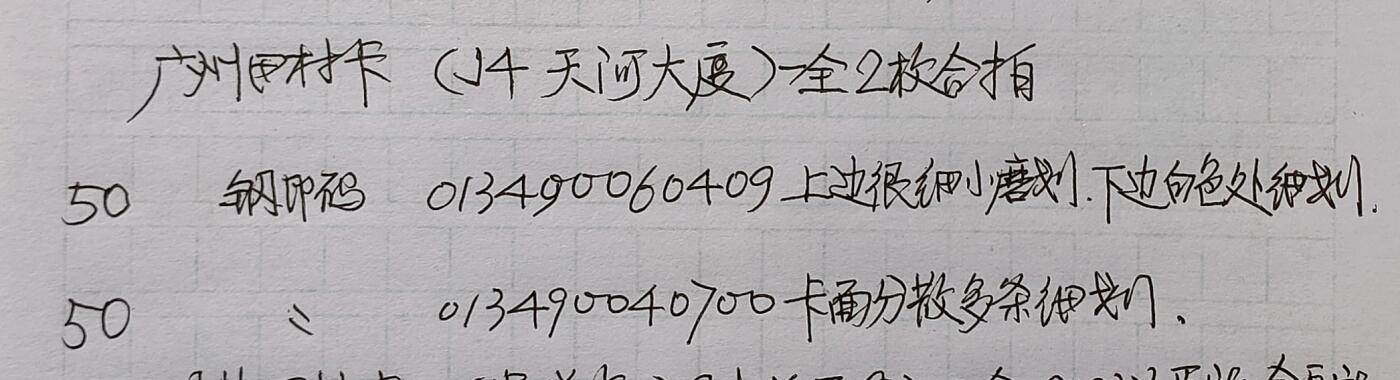 广州田村卡（J4 天河大厦）一全2枚合拍
50 钢印码 013490060409 上边很细小磨划.下边白色处细划.
50 〃 013490040700 卡面分散多条细划.